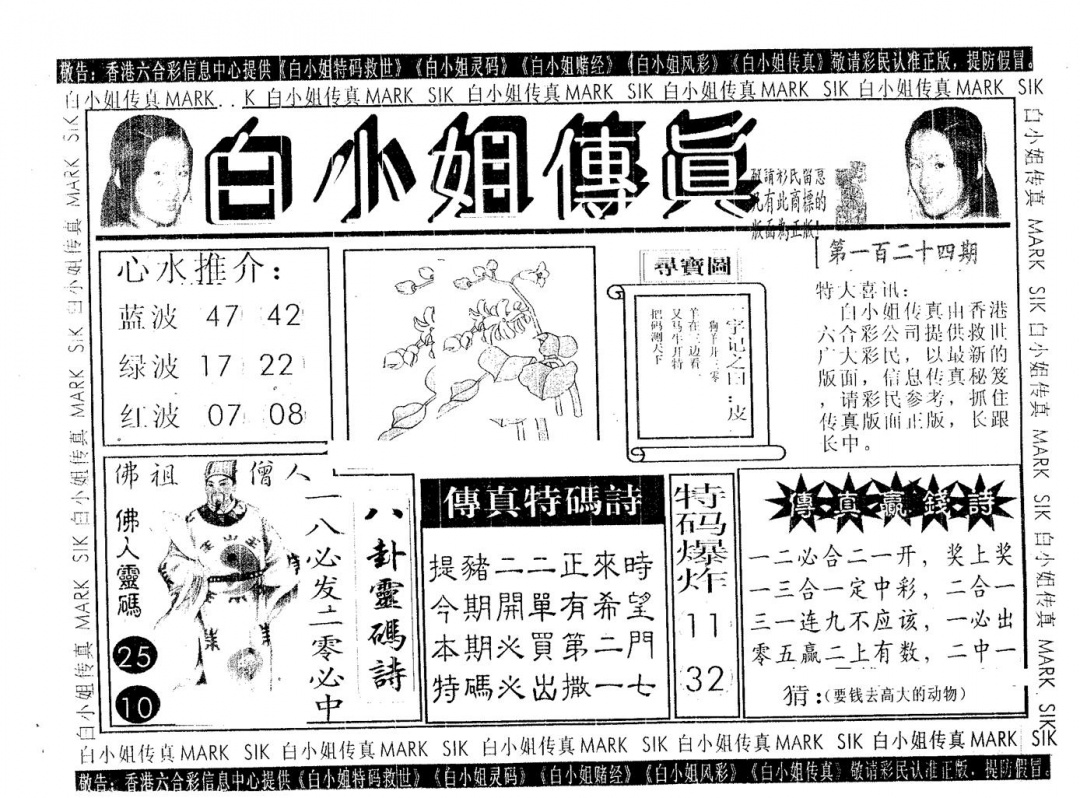 敬告：香港六合彩信息中心提供《白小姐特码救世》《白小姐灵码》《白小姐赌经》《白小姐风彩》《白小姐传真》敬请彩民认准正版，提防假冒。
白小姐传真MARK . . K 白小姐传真MARK SIK 白小姐传真MARK SIK 白小姐传真MARK SIK 白小姐传真MARK SIK
白小姐傳眞
敬請彩民留意
凡有此商標的
版面為正版！
第一百二十四期
心水推介：
蓝波 47 42
绿波 17 22
红波 07 08
尋寶圖
一字记之曰：皮
狗羊开三零
羊在三边看
又马牛开特
把码测天下
特大喜讯：
白小姐传真由香港
六合彩公司提供救世
广大彩民，以最新的
版面，信息传真秘笈
，请彩民参考，抓住
传真版面正版，长跟
长中。
佛祖 僧人
佛人靈碼
25
10
八卦靈碼詩
一八必发二零必中
傳真特碼詩
提豬二二正來時
今期開單有希望
本期必買第二門
特碼必出撒一七
特码爆炸
11
32
傳真贏錢詩
一二必合二一开，奖上奖
一三合一定中彩，二合一
三一连九不应该，一必出
零五赢二上有数，二中一
猜：(要钱去高大的动物)
白小姐传真 MARK SIK 白小姐传真 MARK SIK 白小姐传真 MARK SIK
白小姐传真 MARK SIK 白小姐传真 MARK SIK 白小姐传真 MARK SIK
白小姐传真MARK SIK 白小姐传真MARK SIK 白小姐传真MARK SIK 白小姐传真MARK SIK 白小姐传真MARK SIK
敬告：香港六合彩信息中心提供《白小姐特码救世》《白小姐灵码》《白小姐赌经》《白小姐风彩》《白小姐传真》敬请彩民认准正版，提防假冒。